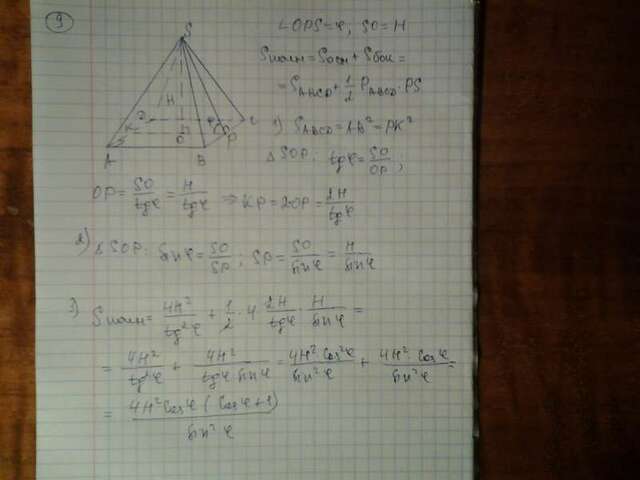 9
∠OPS=φ; SO=H
Sполн=Sосн+Sбок=
=S_ABCD+1/2 P_ABCD·PS
1) S_ABCD=AB²=PK²
△SOP: tgφ=SO/OP;
OP=SO/tgφ=H/tgφ ⇒ KP=2OP=2H/tgφ
2) △SOP: sinφ=SO/SP; SP=SO/sinφ=H/sinφ
3) Sполн=4H²/tg²φ+1/2·4 2H/tgφ·H/sinφ=
=4H²/tg²φ+4H²/tgφ·sinφ=4H²·cos²φ/sin²φ+4H²·cosφ/sin²φ=
=4H²cosφ(cosφ+1)/sin²φ
S
H
D
C
K
O
φ
P
A
B